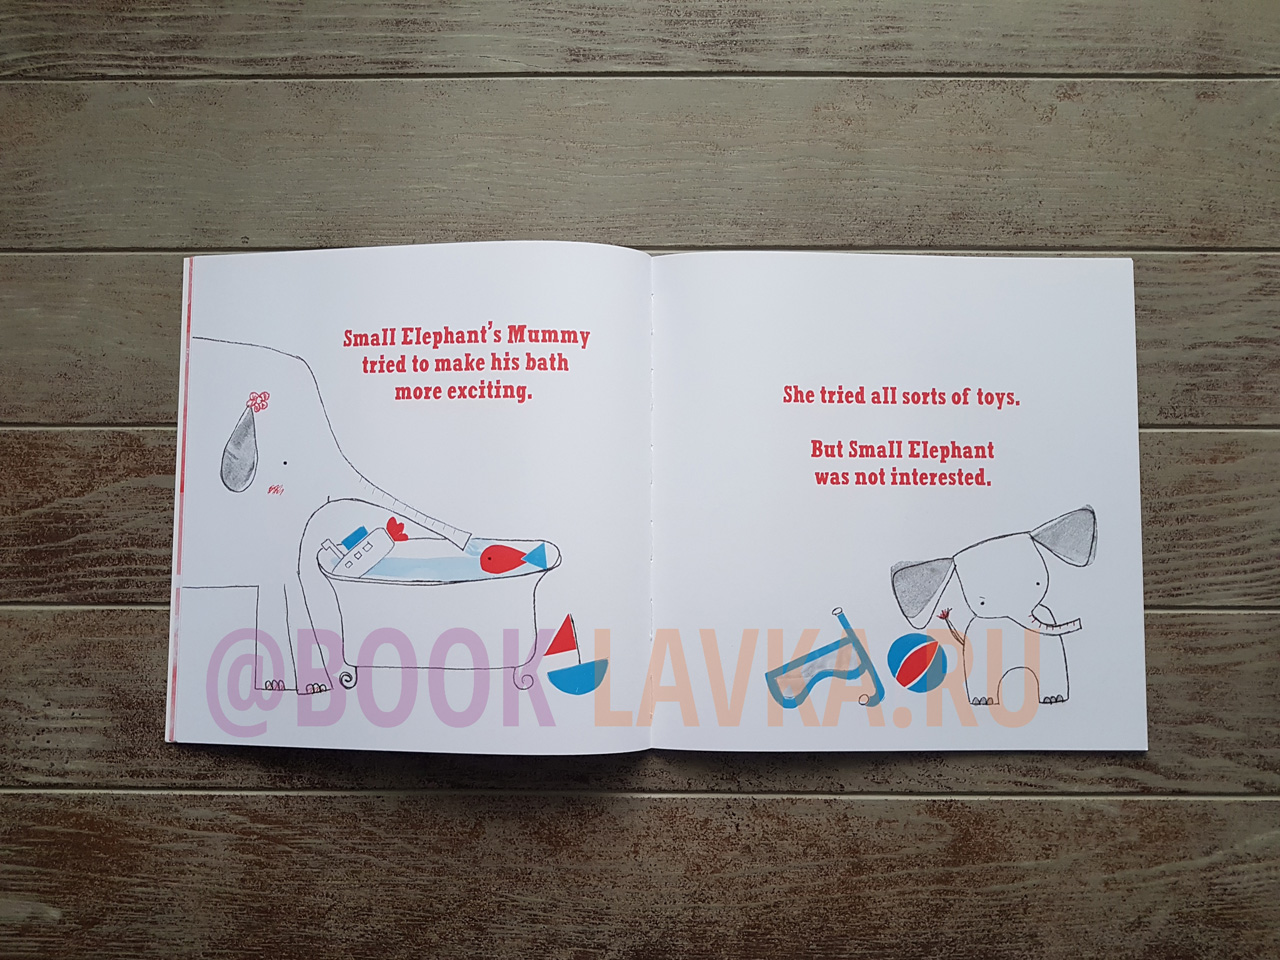 Small Elephant's Mummy
tried to make his bath
more exciting.
She tried all sorts of toys.
But Small Elephant
was not interested.
@BOOK-LAVKA.RU